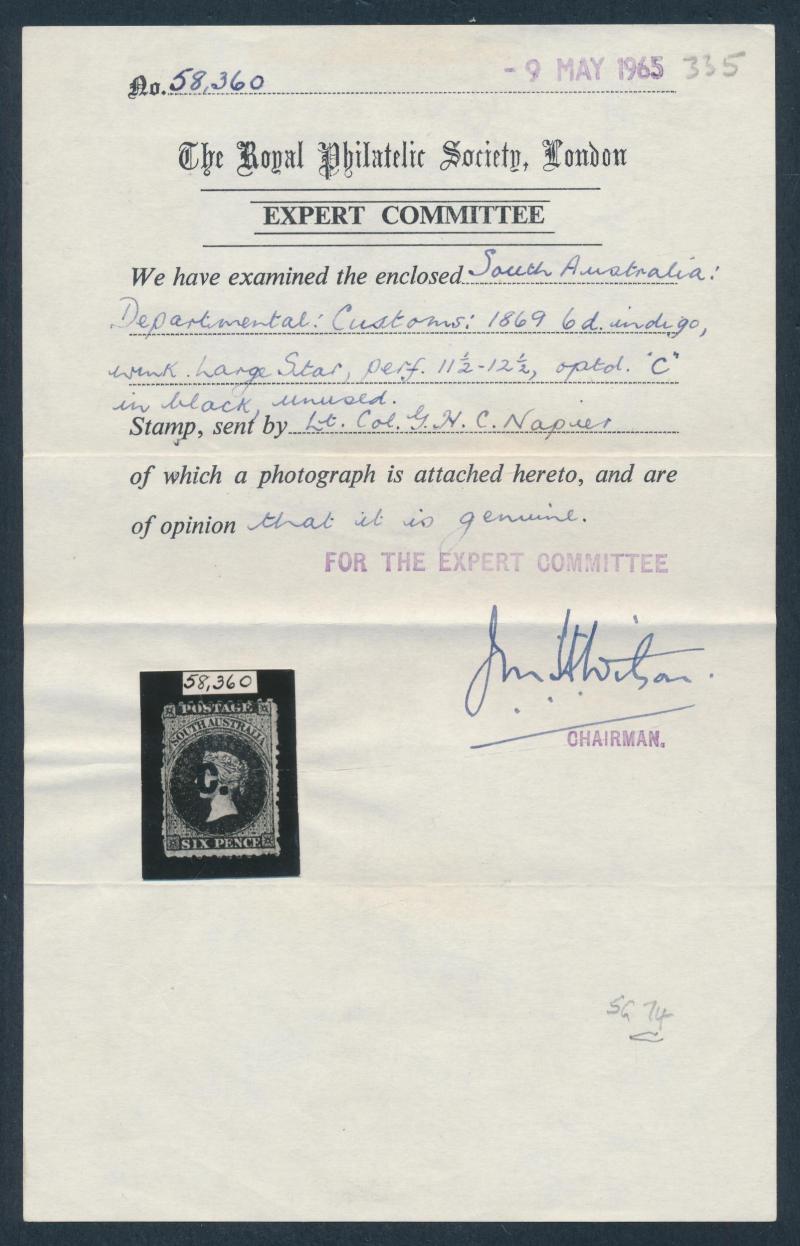 No. 58,360
- 9 MAY 1965 335
The Royal Philatelic Society, London
EXPERT COMMITTEE
We have examined the enclosed South Australia:
Departmental: Customs: 1869 6d. indigo,
wmk. Large Star, perf. 11½-12½, optd. "C"
in black, unused.
Stamp, sent by Lt. Col. G. H. C. Napier
of which a photograph is attached hereto, and are
of opinion that it is genuine.
FOR THE EXPERT COMMITTEE
58,360
POSTAGE
SOUTH AUSTRALIA
C.
SIX PENCE
CHAIRMAN.
SG 74